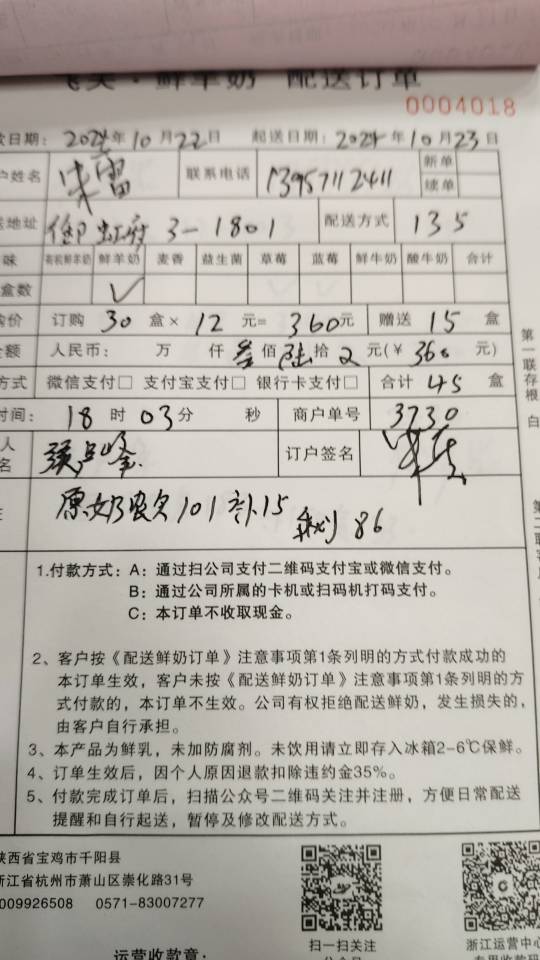 鲜羊奶 配送订单
0004018
款日期： 2024年10月22日 起送日期：2024年10月23日
户姓名 朱雷 联系电话 13957112411 新单 续单
送地址 御虹府 3-1801 配送方式 135
味 有机鲜羊奶 鲜羊奶 麦香 益生菌 草莓 蓝莓 鲜牛奶 酸牛奶 合计
盒数 ✓
购价 订购 30 盒× 12 元= 360元 赠送 15 盒
金额 人民币： 万 仟 叁佰 陆拾 元(￥ 360 元)
方式 微信支付□ 支付宝支付□ 银行卡支付□ 合计 45 盒
时间： 18 时 03分 秒 商户单号 3730
人
名
订户签名
原奶欠101 补15 剩86
第一联存根 白
1.付款方式：A：通过扫公司支付二维码支付宝或微信支付。
B：通过公司所属的卡机或扫码机打码支付。
C：本订单不收取现金。
2、客户按《配送鲜奶订单》注意事项第1条列明的方式付款成功的
本订单生效，客户未按《配送鲜奶订单》注意事项第1条列明的方
式付款的，本订单不生效。公司有权拒绝配送鲜奶，发生损失的，
由客户自行承担。
3、本产品为鲜乳，未加防腐剂。未饮用请立即存入冰箱2-6℃保鲜。
4、订单生效后，因个人原因退款扣除违约金35%。
5、付款完成订单后，扫描公众号二维码关注并注册，方便日常配送
提醒和自行起送，暂停及修改配送方式。
陕西省宝鸡市千阳县
浙江省杭州市萧山区崇化路31号
009926508 0571-83007277
运营收款章：
扫一扫关注
浙江运营中心